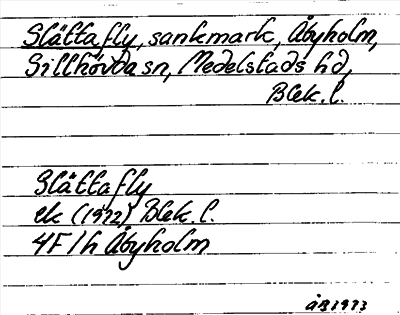 Slättafly, sankmark, Åbyholm,
Sillhövda sn, Medelstads hd,
Blek. l.
Slättafly
ek (1972) Blek. l.
4F1h Åbyholm
ÅB1973